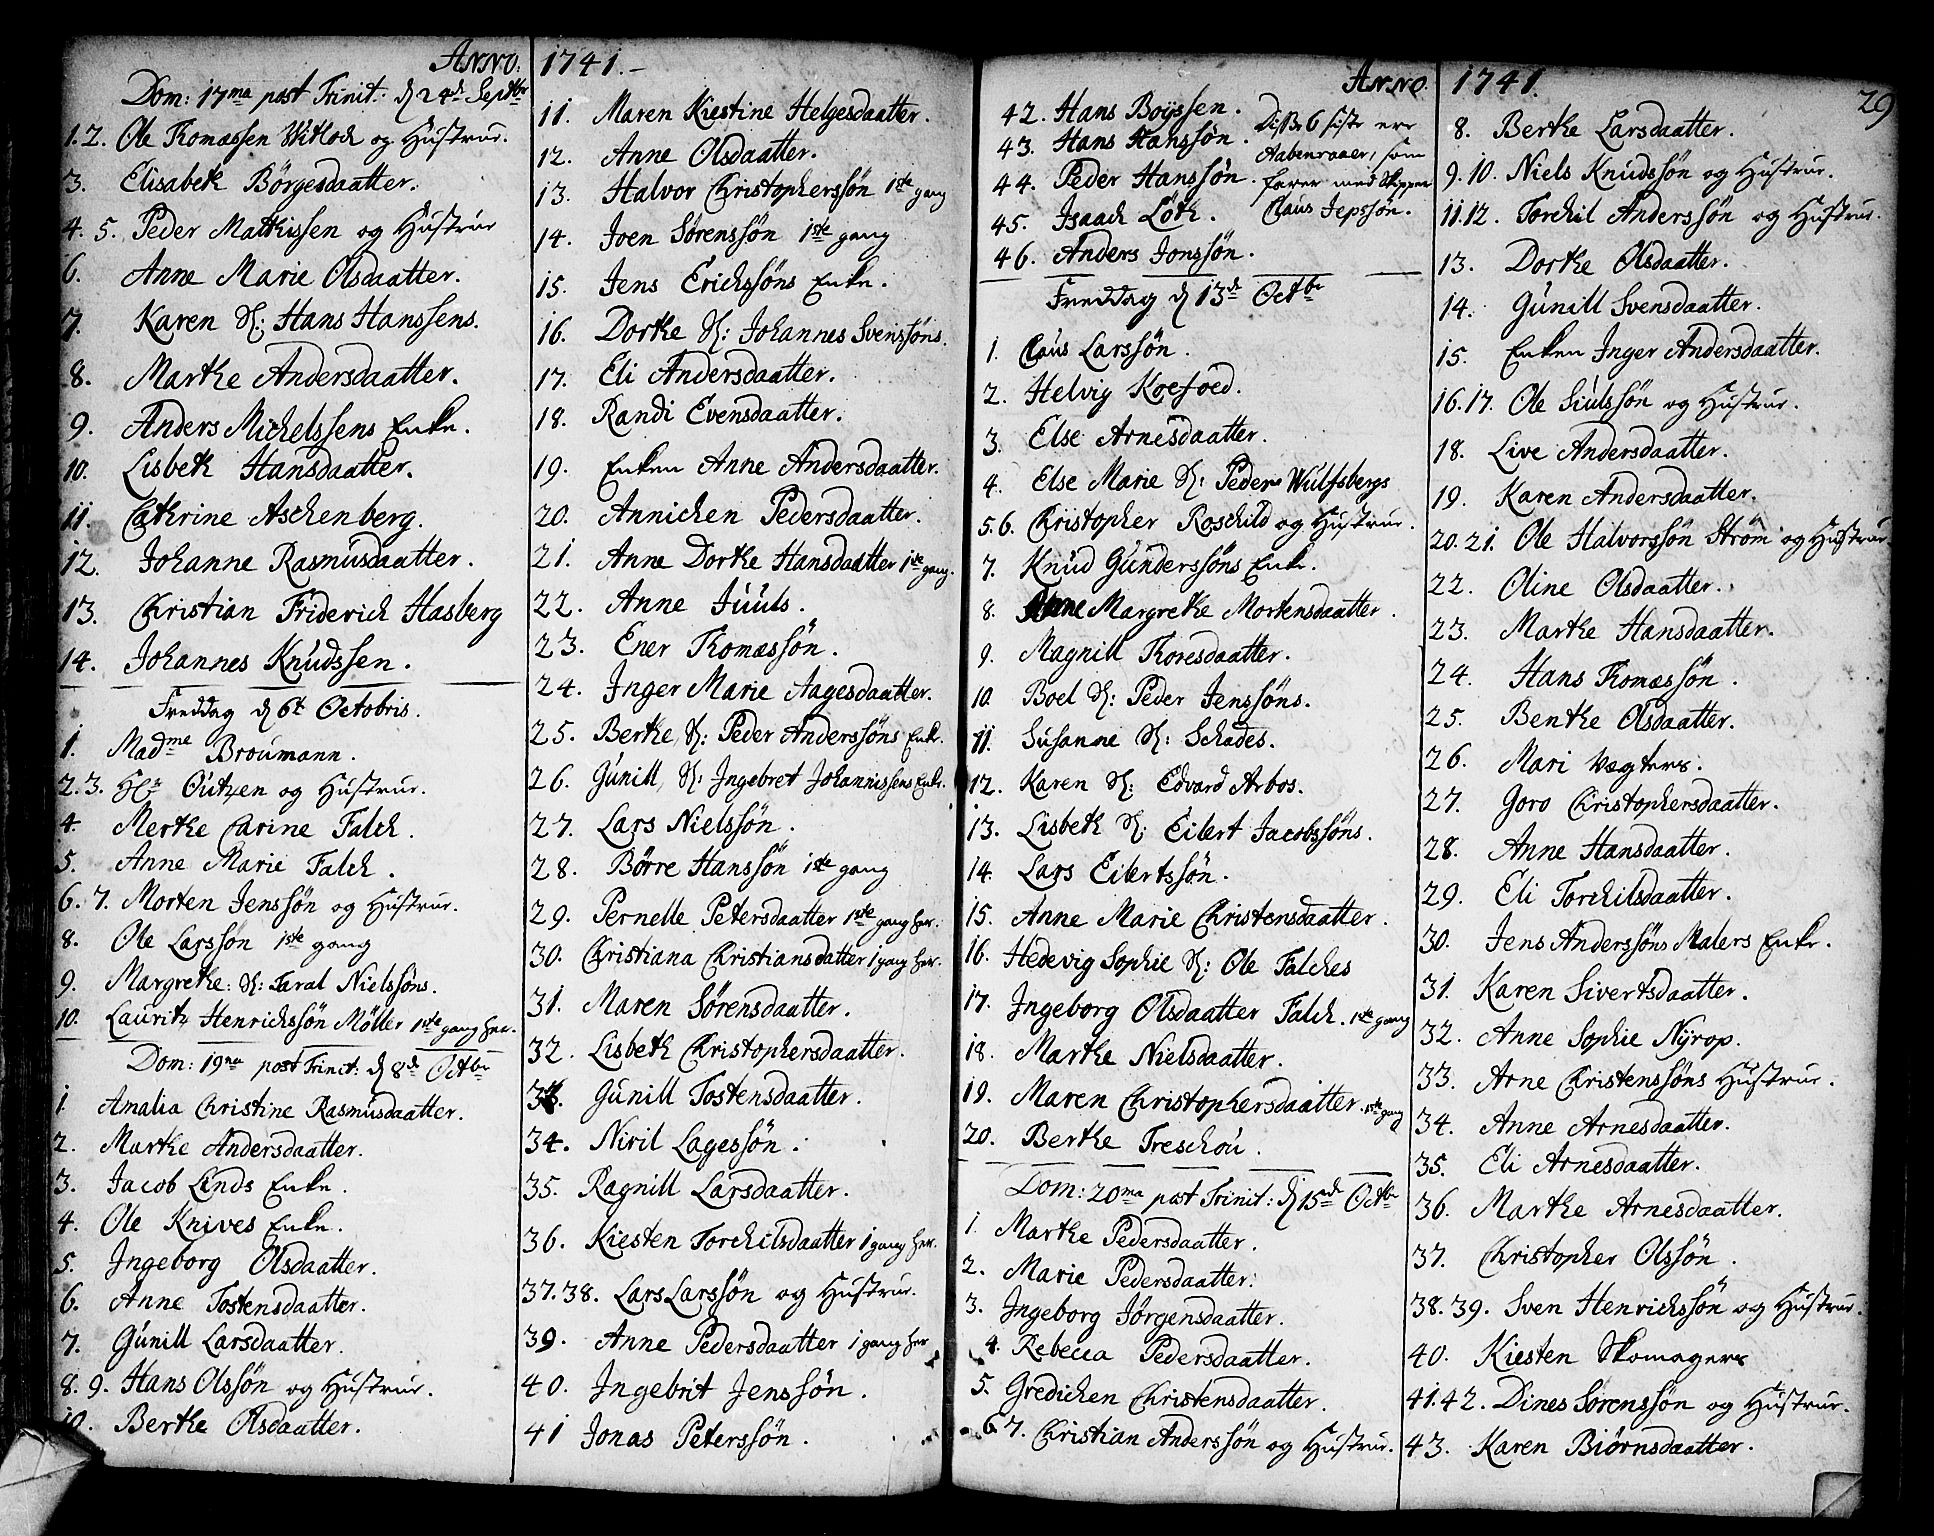 Anno 1741.
Dom: 17ma post Trinit: d 24de Septbr
1. 2. Ole Thomæssen Witloch og Hustrue.
3. Elisabeth Börgesdaatter.
4. 5. Peder Mathissen og Hustrue
6. Anne Marie Olsdaatter.
7. Karen S: Hans Hanssens.
8. Marthe Andersdaatter.
9. Anders Michelssens Enke.
10. Lisbeth Hansdaatter.
11. Cathrine Aschenberg.
12. Johanne Rasmusdaatter.
13. Christian Friderich Hasberg
14. Johannes Knudssen.
Freddag d 6te Octobris.
1. Madme Broumann.
2. 3. Hr Outzen og Hustrue.
4. Merthe Carine Falch.
5. Anne Marie Falch.
6. 7. Morten Jenssön og Hustrue.
8. Ole Larssön 1ste gang
9. Margrethe: S: Taral Nielssöns.
10. Lauritz Henrichssön Möller 1ste gang her.
Dom: 19na post Trinit: d 8de Octbr
1. Amalia Christine Rasmusdaatter.
2. Marthe Andersdaatter.
3. Jacob Linds Enke.
4. Ole Knives Enke.
5. Ingeborg Olsdaatter.
6. Anne Tostensdaatter.
7. Gunill Larsdaatter.
8. 9. Hans Olssön og Hustrue.
10. Berthe Olsdaatter.
11. Maren Kiestine Helgesdaatter.
12. Anne Olsdaatter.
13. Halvor Christopherssön 1ste gang
14. Joen Sörenssön 1ste gang
15. Jens Erichssöns Enke.
16. Dorthe S: Johannes Svenssöns.
17. Eli Andersdaatter.
18. Randi Evensdaatter.
19. Enken Anne Andersdaatter.
20. Annichen Pedersdaatter.
21. Anne Dorthe Hansdaatter 1ste gang.
22. Anne Juuls.
23. Ener Thomæssön.
24. Inger Marie Aagesdaatter.
25. Berthe, S: Peder Anderssöns Enke.
26. Gunill, S: Ingebret Johannissens Enke.
27. Lars Nielssön.
28. Börre Hanssön 1ste gang
29. Pernelle Petersdaatter 1ste gang her.
30. Christiana Christiansdatter 1 gang her.
31. Maren Sörensdaatter.
32. Lisbeth Christophersdaatter.
33. Gunill Tostensdaatter.
34. Niril Lagessön.
35. Ragnill Larsdaatter.
36. Kiesten Torchilsdaatter 1 gang her.
37. 38. Lars Larssön og Hustrue.
39. Anne Pedersdaatter 1 gang her
40. Ingebrit Jenssön.
41 Jonas Peterssön.
Anno 1741.
29
42. Hans Boyssen.
43. Hans Hanssön.
44. Peder Hanssön.
45. Isaach Löth.
46. Anders Jonssön.
Disse 6 siste ere
Aabenraaer, som
farer med Skipper
Claus Jepssön.
Freddag d 13de Octbr
1. Claus Larssön.
2. Helvig Koefoed.
3. Else Arnesdaatter.
4. Else Marie S: Peder Wulfsbergs
5. 6. Christopher Roschild og Hustrue.
7. Knud Gunderssöns Enke.
8. Anne Margrethe Mortensdaatter.
9. Magnill Thoresdaatter.
10. Boel S: Peder Jenssöns.
11. Susanne S: Schades.
12. Karen S: Edvard Arbos.
13. Lisbeth S: Eilert Jacobssöns.
14. Lars Eilertssön.
15. Anne Marie Christensdaatter.
16. Hedevig Sophie S: Ole Falches
17. Ingeborg Olsdaatter Falch. 1ste gang
18. Marthe Nielsdaatter.
19. Maren Christophersdaatter. 1ste gang
20. Berthe Treschou.
Dom: 20ma post Trinit: d 15de Octbr
1. Marthe Pedersdaatter.
2. Marie Pedersdaatter.
3. Ingeborg Jörgensdaatter.
4. Rebecca Pedersdaatter.
5. Gredichen Christensdaatter.
6 7. Christian Anderssön og Hustrue.
8. Berthe Larsdaatter.
9. 10. Niels Knudssön og Hustrue.
11. 12. Torchil Anderssön og Hustrue.
13. Dorthe Olsdaatter.
14. Gunill Svensdaatter.
15. Enken Inger Andersdaatter.
16. 17. Ole Siulssön og Hustrue.
18. Live Andersdaatter.
19. Karen Andersdaatter.
20. 21. Ole Halvorssön Ström og Hustrue.
22. Oline Olsdaatter.
23. Marthe Hansdaatter.
24. Hans Thomæssön.
25. Benthe Olsdaatter.
26. Mari Vægters.
27. Goro Christophersdaatter.
28. Anne Hansdaatter.
29. Eli Torchilsdaatter.
30. Jens Anderssöns Malers Enke.
31. Karen Sivertsdaatter.
32. Anne Sophie Nyrop.
33. Arne Christenssöns Hustrue.
34. Anne Arnesdaatter.
35. Eli Arnesdaatter.
36. Marthe Arnesdaatter.
37. Christopher Olssön.
38. 39. Sven Henrichssön og Hustrue.
40. Kiesten Skomagers
41. 42. Dines Sorenssön og Hustrue.
43. Karen Biörnsdaatter.